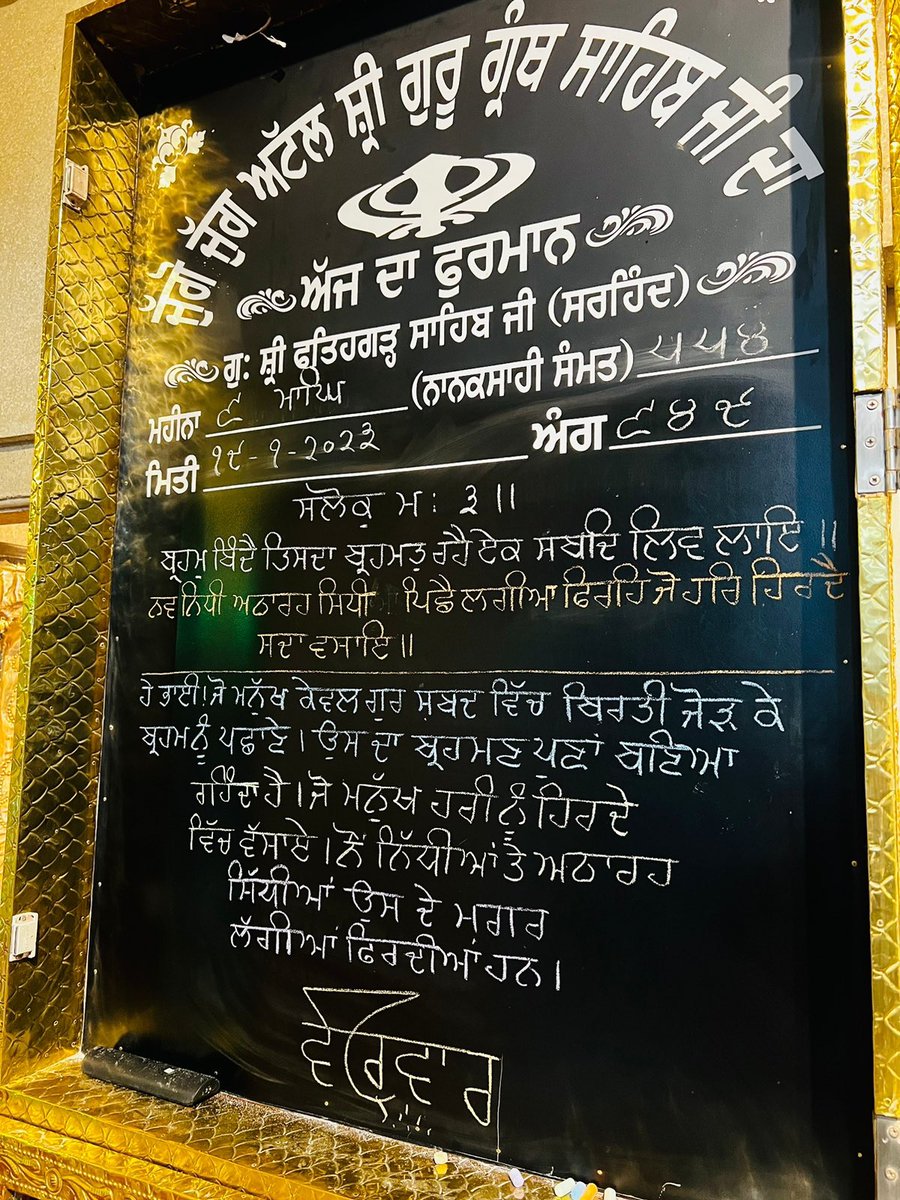 ਜੁੱਗੋ ਜੁੱਗ ਅਟੱਲ ਸ਼੍ਰੀ ਗੁਰੂ ਗ੍ਰੰਥ ਸਾਹਿਬ ਜੀ ਦਾ
ਅੱਜ ਦਾ ਫੁਰਮਾਨ
ਗੁ: ਸ਼੍ਰੀ ਫਤਿਹਗੜ੍ਹ ਸਾਹਿਬ ਜੀ (ਸਰਹਿੰਦ)
ਮਹੀਨਾ ੬ ਮਾਘਿ (ਨਾਨਕਸਾਹੀ ਸੰਮਤ) ੫੫੪
ਮਿਤੀ ੧੯-੧-੨੦੨੩ ਅੰਗ ੬੪੯
ਸਲੋਕੁ ਮ: ੩ ॥
ਬ੍ਰਹਮੁ ਬਿੰਦੈ ਤਿਸਦਾ ਬ੍ਰਹਮਤੁ ਰਹੈ ਏਕ ਸਬਦਿ ਲਿਵ ਲਾਇ ॥
ਨਵ ਨਿਧੀ ਅਠਾਰਹ ਸਿਧੀ ਪਿਛੈ ਲਗੀਆ ਫਿਰਹਿ ਜੋ ਹਰਿ ਹਿਰਦੈ
ਸਦਾ ਵਸਾਇ ॥
ਹੇ ਭਾਈ! ਜੋ ਮਨੁੱਖ ਕੇਵਲ ਗੁਰ ਸ਼ਬਦ ਵਿੱਚ ਬਿਰਤੀ ਜੋੜ ਕੇ
ਬ੍ਰਹਮ ਨੂੰ ਪਛਾਣੇ। ਉਸ ਦਾ ਬ੍ਰਹਮਣ ਪੁਣਾਂ ਬਣਿਆ
ਰਹਿੰਦਾ ਹੈ। ਜੋ ਮਨੁੱਖ ਹਰੀ ਨੂੰ ਹਿਰਦੇ
ਵਿੱਚ ਵੱਸਾਏ। ਨੌਂ ਨਿੱਧੀਆਂ ਤੇ ਅਠਾਰਹ
ਸਿੱਧੀਆਂ ਉਸ ਦੇ ਮਗਰ
ਲੱਗੀਆਂ ਫਿਰਦੀਆਂ ਹਨ।
ਵੀਰਵਾਰ